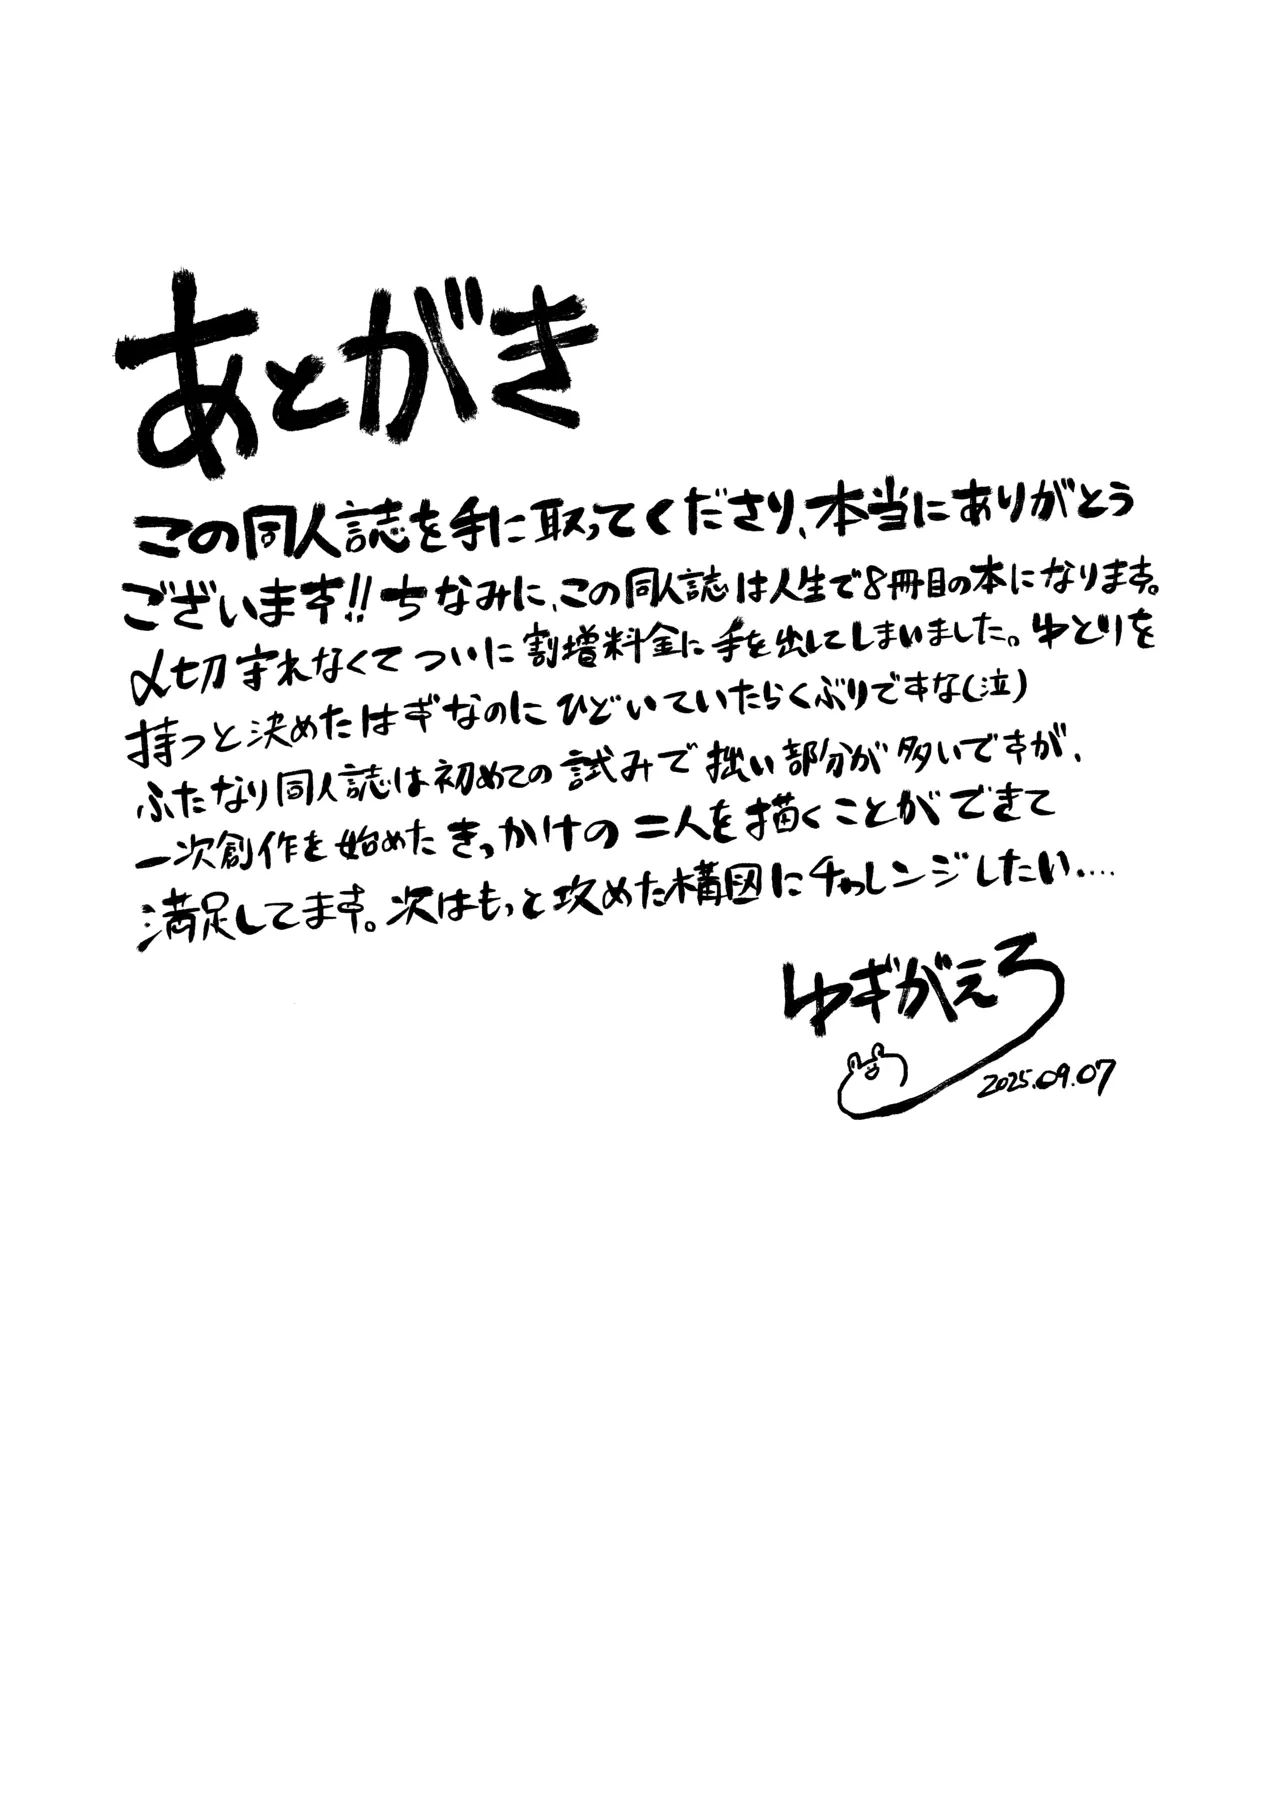 あとがき
この同人誌を手に取ってくださり、本当にありがとう
ございます!! ちなみに、この同人誌は人生で8冊目の本になります。
〆切守れなくてついに割増料金に手を出してしまいました。ゆとりを
持つと決めたはずなのにひどいていたらくぶりですな(泣)
ふたなり同人誌は初めての試みで拙い部分が多いですが、
一次創作を始めたきっかけの二人を描くことができて
満足してます。次はもっと攻めた構図にチャレンジしたい....
ゆずがえる
2025.09.07